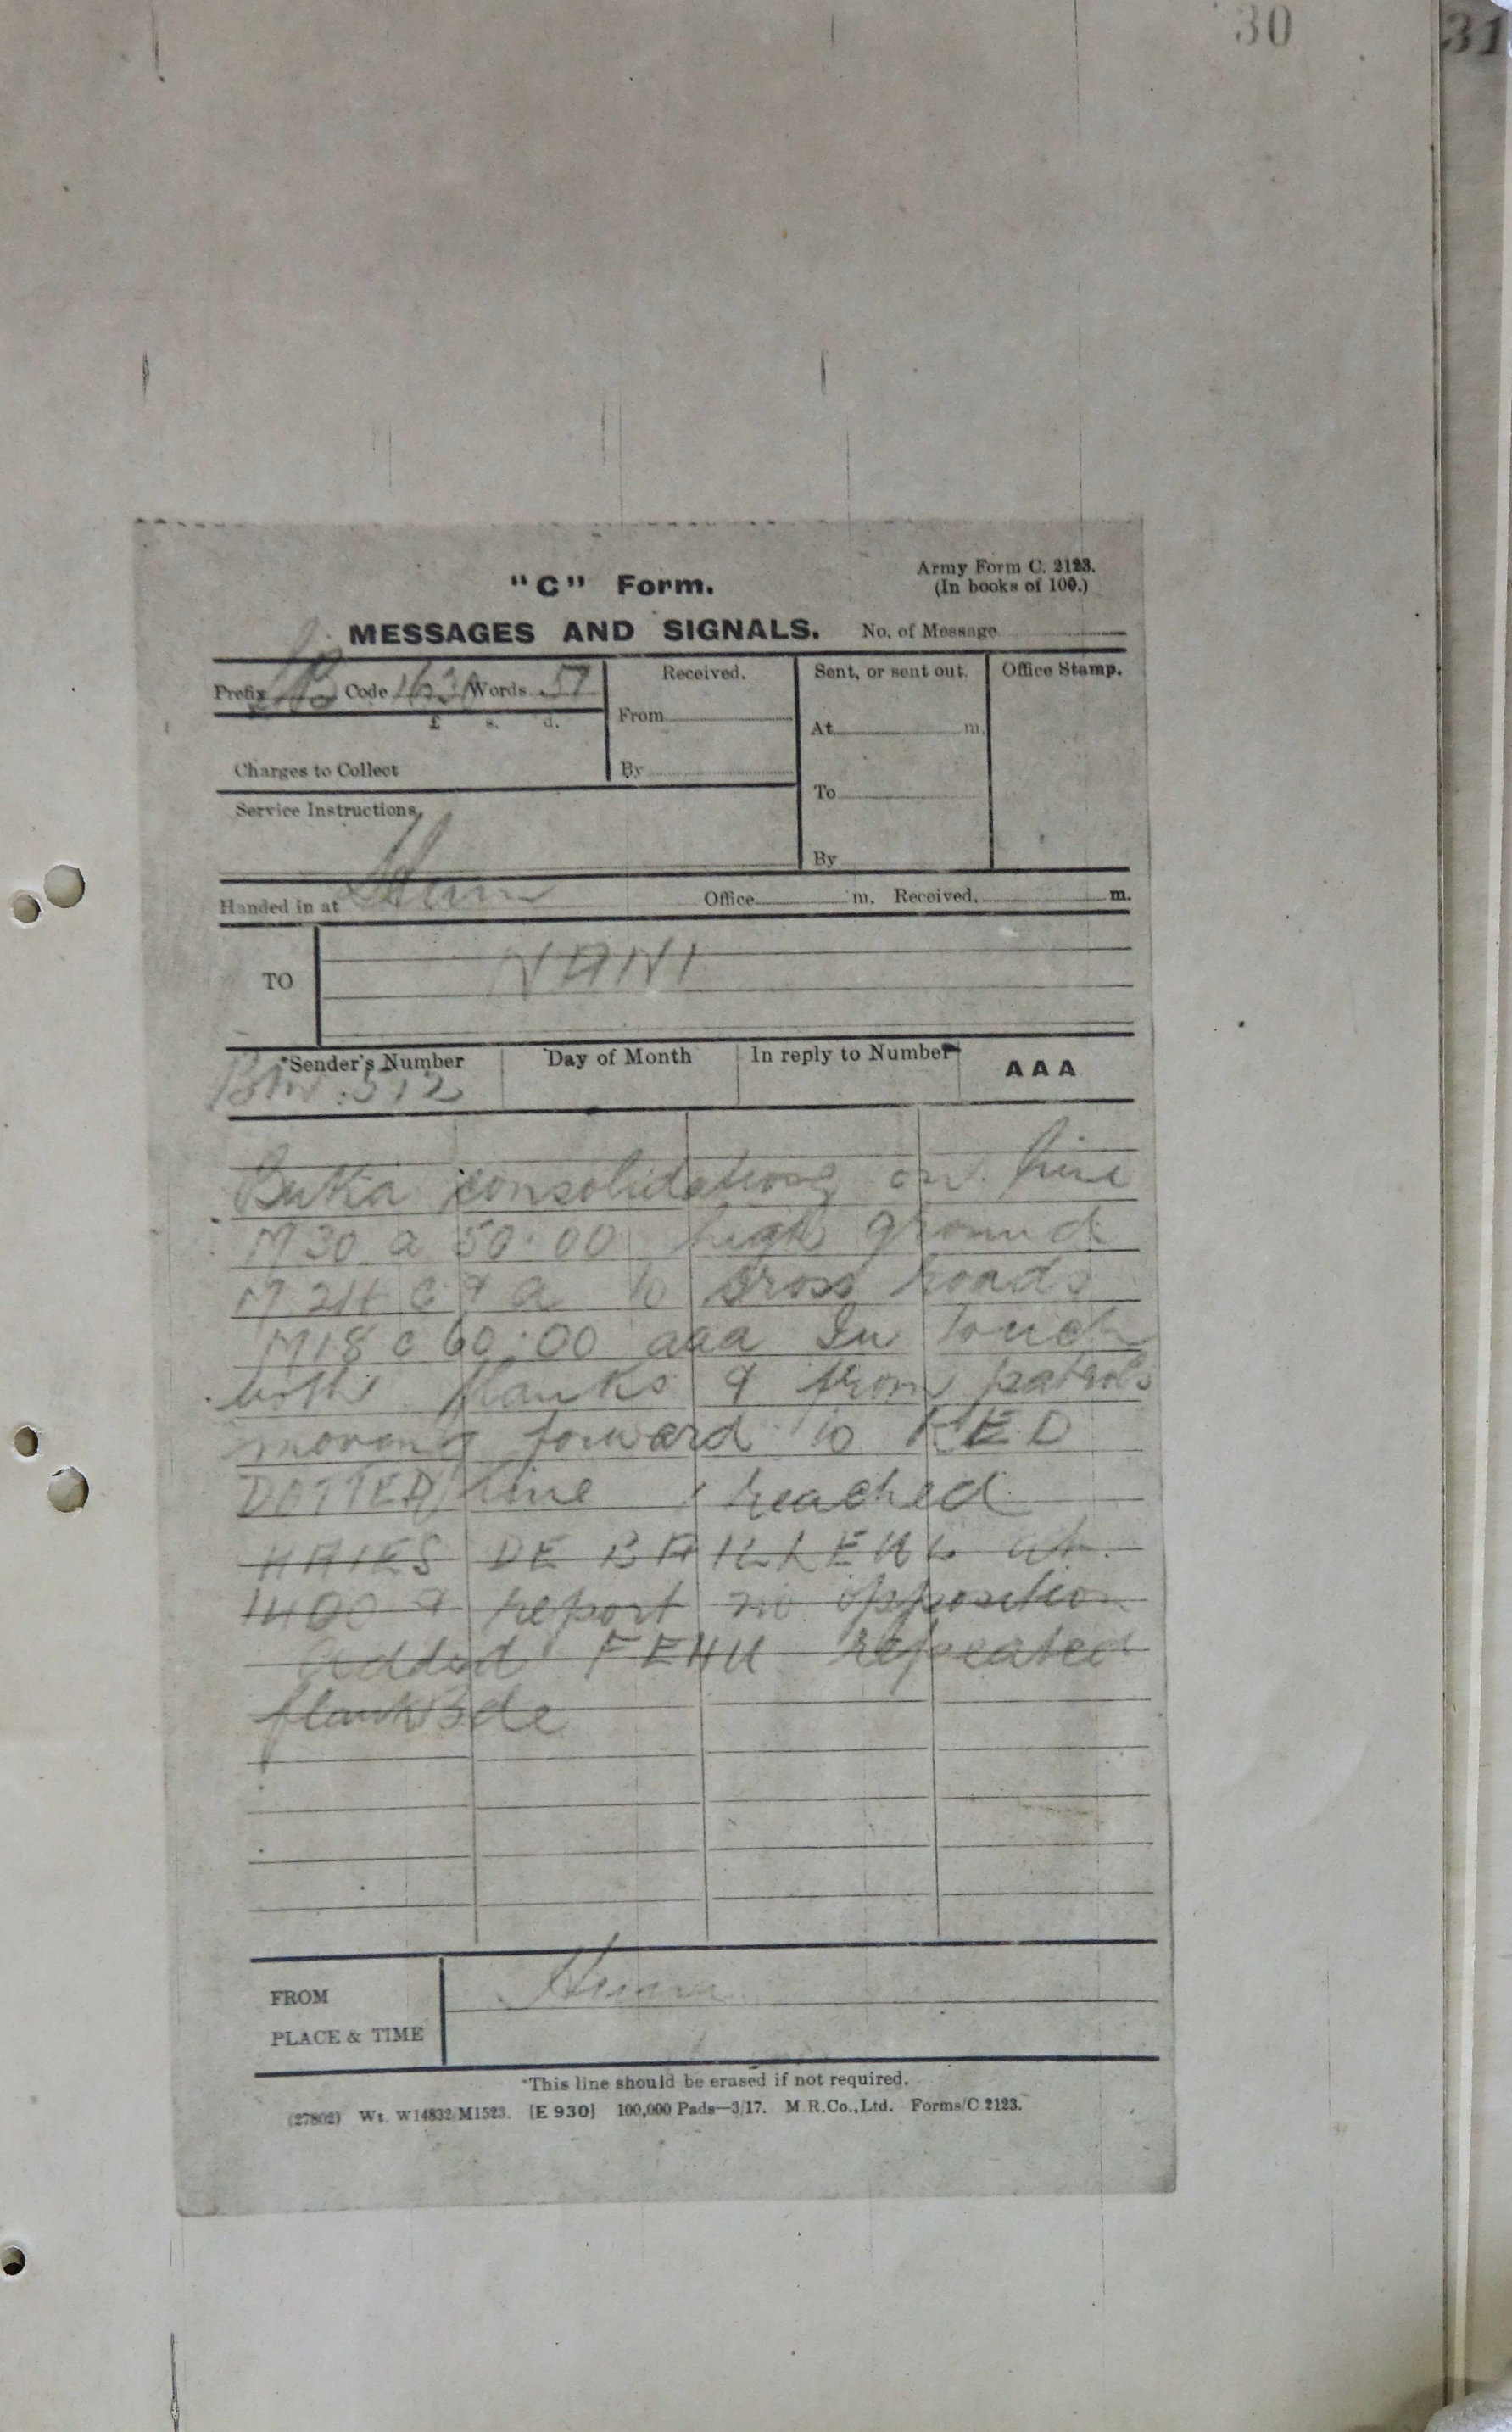 30
31
"C" Form.
Army Form C. 2123.
(In books of 100.)
MESSAGES AND SIGNALS.
No. of Message
Prefix Code Words 57
Received.
Sent, or sent out.
Office Stamp.
£ s. d.
From
At m.
Charges to Collect
By
To
Service Instructions
By
Handed in at
Office m. Received. m.
TO
NANI
*Sender's Number
Day of Month
In reply to Number
AAA
BM. 512
Buka consolidating on line
M30 a 50.00 high ground
M24 c & a to cross roads
M18 c 60.00 aaa In touch
both flanks & from patrols
moving forward to RED
DOTTED line reached
HAIES DE at
1400 & report no opposition
added FEHU repeated
flanks
FROM
PLACE & TIME
*This line should be erased if not required.
(27802) Wt. W14832/M1523. [E 930] 100,000 Pads—3/17. M.R.Co.,Ltd. Forms/C 2123.